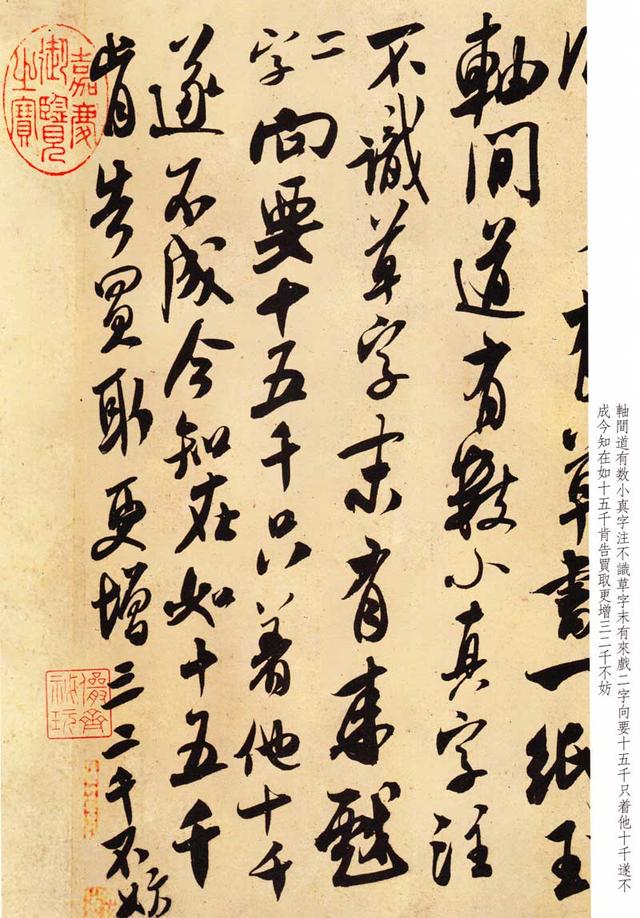 草書一紙玉
軸間道有數小真字注
不識草字末有來戲
二字向要十五千只着他十千
遂不成今知在如十五千
肯告買取更增三二千不妨
嘉慶御覽之寶
儼齋秘玩
軸間道有数小真字注不識草字末有來戲二字向要十五千只着他十千遂不
成今知在如十五千肯告買取更增三二千不妨